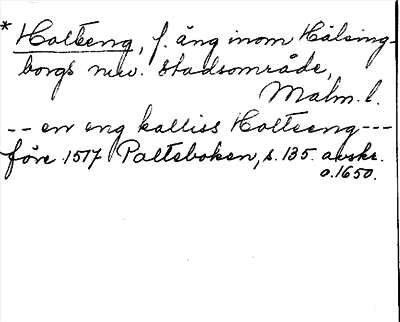 * Holteng, f. äng inom Hälsing-
borgs nuv. stadsområde,
Malm. l.
-- en eng kalliss Holteeng ---
före 1517 Palteboken, s. 135. avskr.
o. 1650.